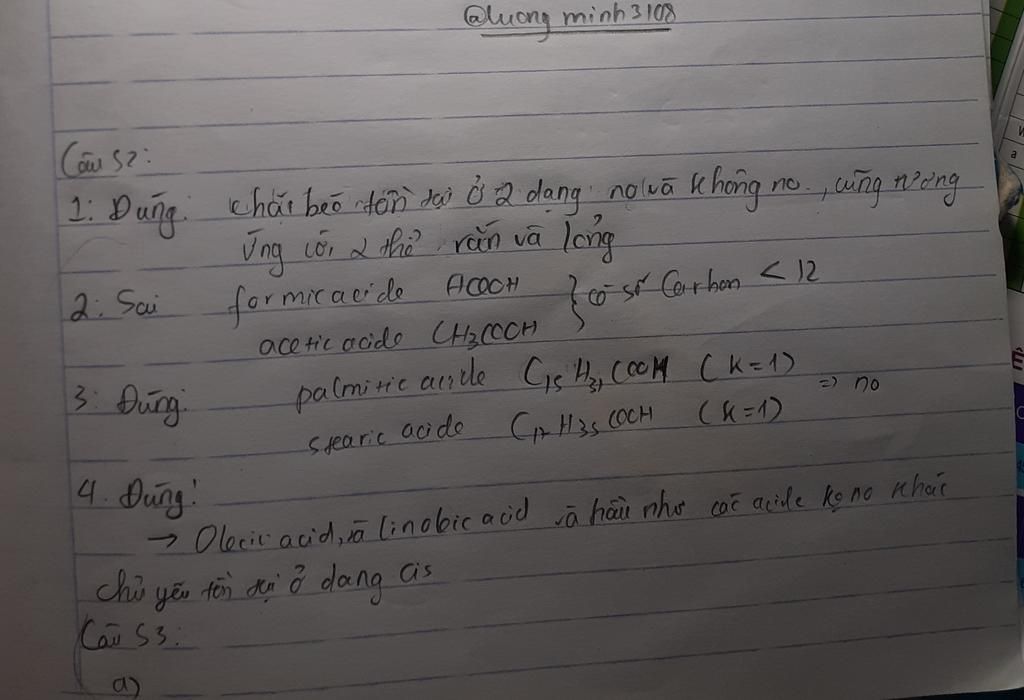 @luong minh3108
Câu 52:
1: Đúng: chất béo tồn tại ở 2 dạng no và không no, cũng tương
ứng với 2 thể rắn và lỏng
2: Sai formic acide HCOOH } có số Carbon < 12
acetic acide CH3COOH
3: Đúng: palmitic acide C15H31COOH (k=1) => no
stearic acide C17H35COOH (k=1)
4. Đúng!
→ Oleic acid, và linoleic acid và hầu như các acide ko no khác
chủ yếu tồn tại ở dạng cis
Câu 53:
a)